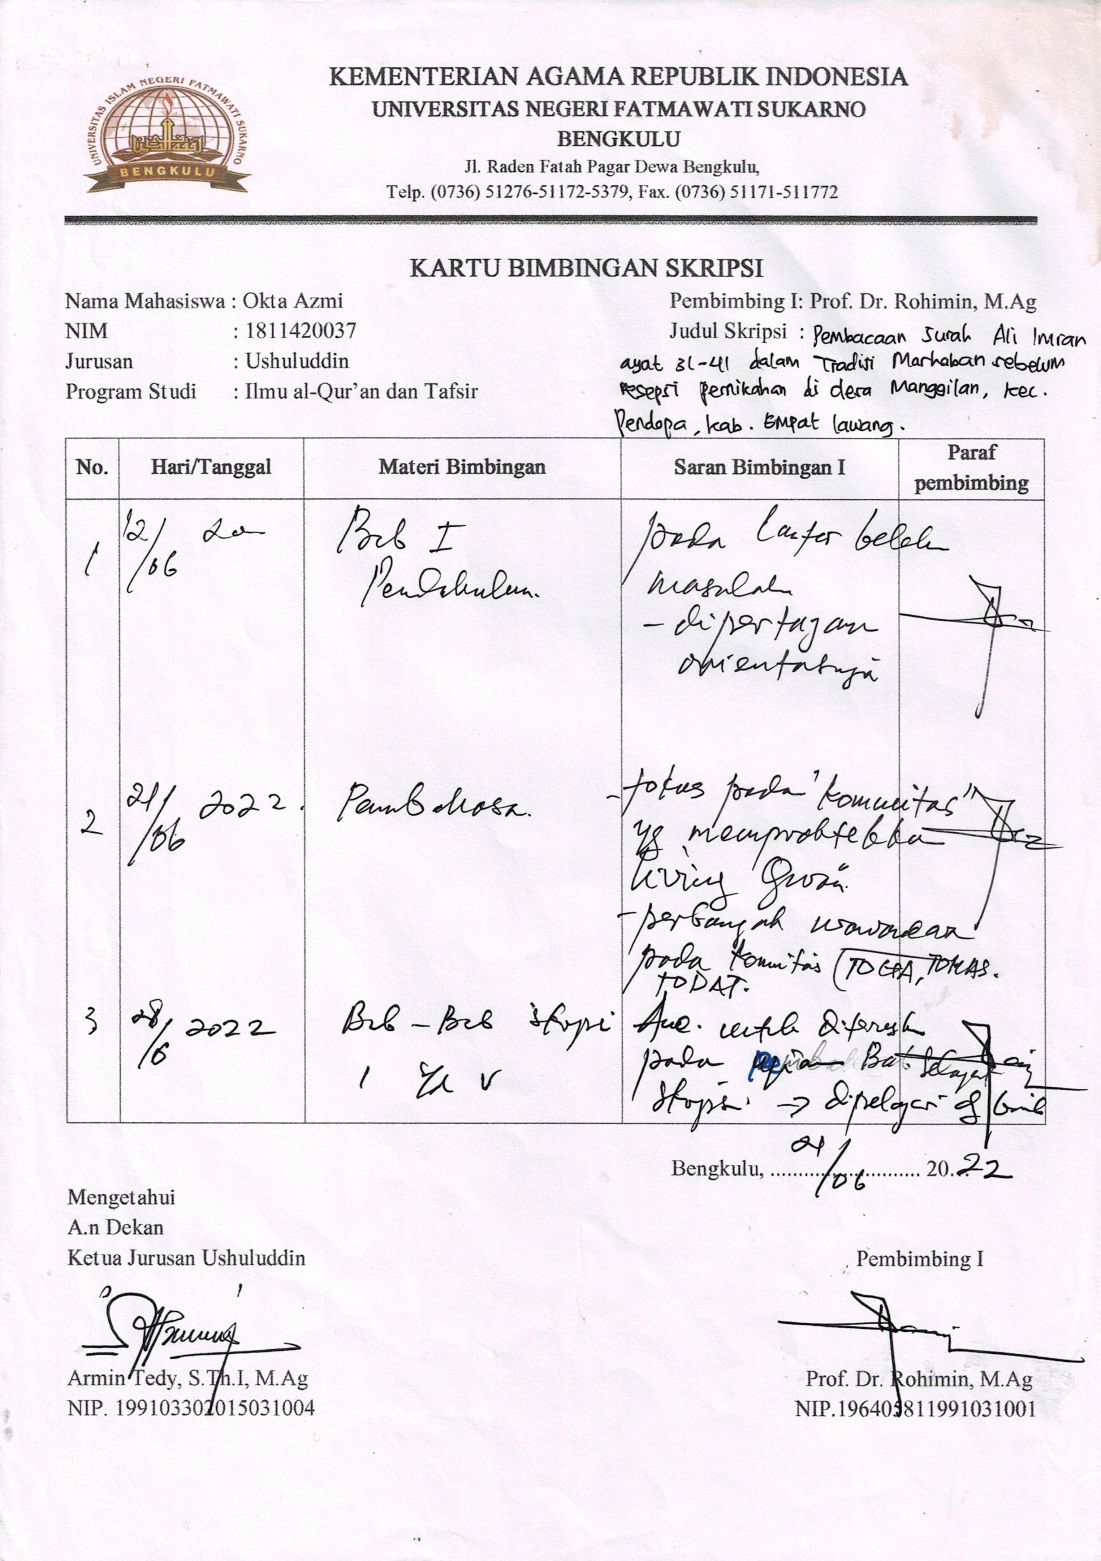 KEMENTERIAN AGAMA REPUBLIK INDONESIA
UNIVERSITAS NEGERI FATMAWATI SUKARNO
BENGKULU
Jl. Raden Fatah Pagar Dewa Bengkulu,
Telp. (0736) 51276-51172-5379, Fax. (0736) 51171-511772
UNIVERSITAS ISLAM NEGERI FATMAWATI SUKARNO
BENGKULU
KARTU BIMBINGAN SKRIPSI
Nama Mahasiswa : Okta Azmi
NIM : 1811420037
Jurusan : Ushuluddin
Program Studi : Ilmu al-Qur'an dan Tafsir
Pembimbing I: Prof. Dr. Rohimin, M.Ag
Judul Skripsi : Pembacaan Surah Ali Imran
ayat 31-41 dalam Tradisi Marhaban sebelum
resepsi pernikahan di desa Manggilan, kec.
Pendopo, kab. Empat lawang.
No. Hari/Tanggal Materi Bimbingan Saran Bimbingan I Paraf pembimbing
1 12/06 Bab I
pada
masalah
- dipertajam
orientasinya
2 21/06 2022.
- fokus pada "komunitas"
yg
living Qur'an.
-
pada komunitas (TOGA, TOMAS.
TODAT.
3 28/6 2022 Bab - Bab Skripsi
I V
Acc. untuk
pada
Skripsi. → dipelajari
Bengkulu, .......................... 20..22
/06
Mengetahui
A.n Dekan
Ketua Jurusan Ushuluddin
Armin Tedy, S.Th.I, M.Ag
NIP. 199103302015031004
Pembimbing I
Prof. Dr. Rohimin, M.Ag
NIP.196405811991031001